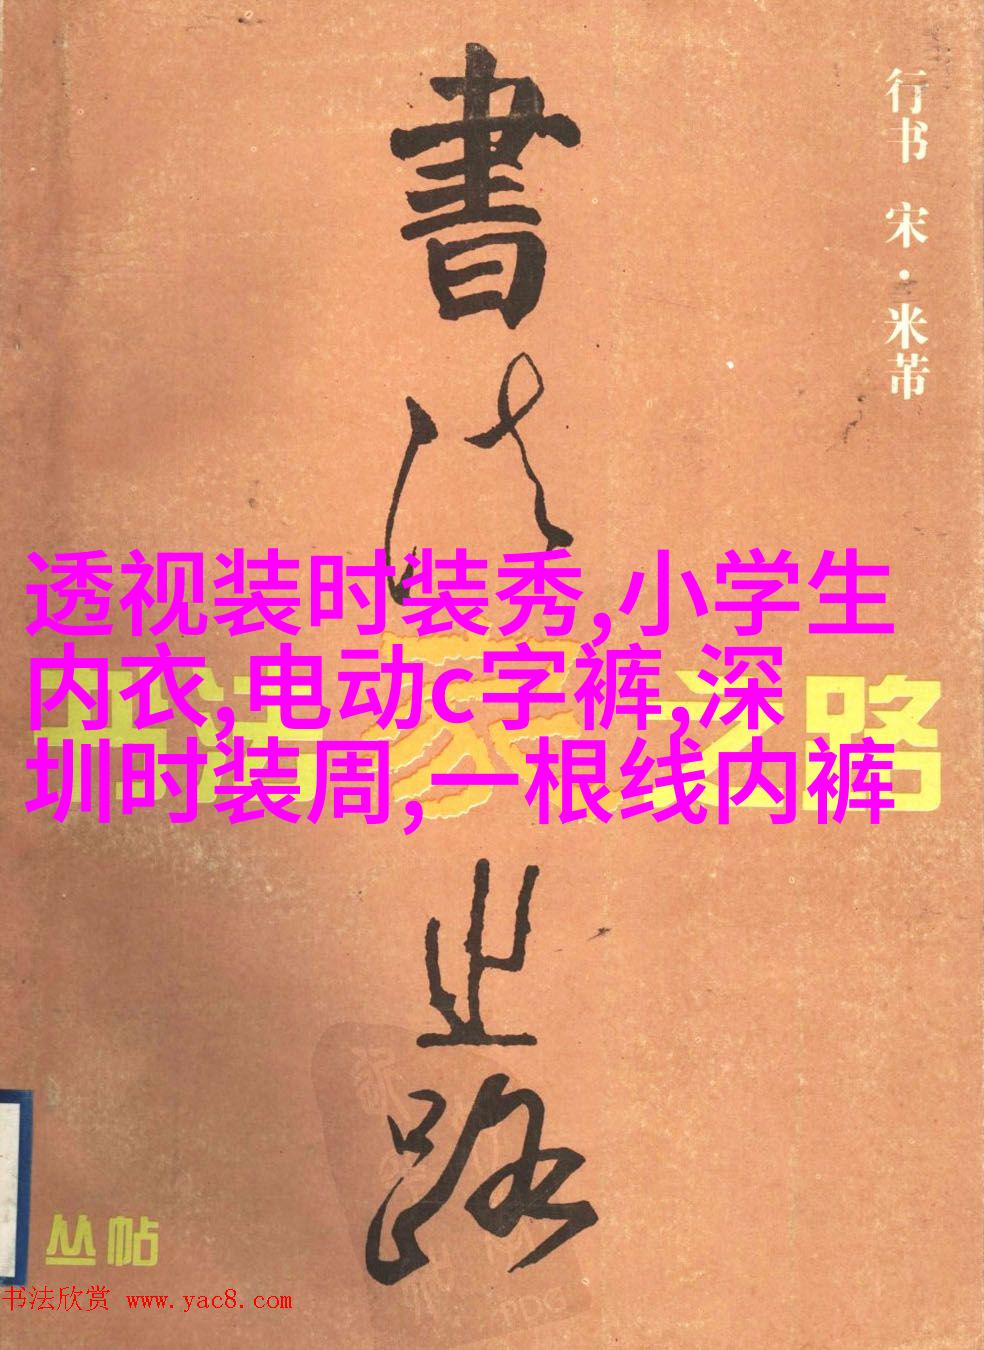 書法家之路
行书 宋·米芾
透视装时装秀,小学生
内衣,电动c字裤,深
圳时装周,一根线内裤
书法家之路
丛帖
书法欣赏 www.yac8.com